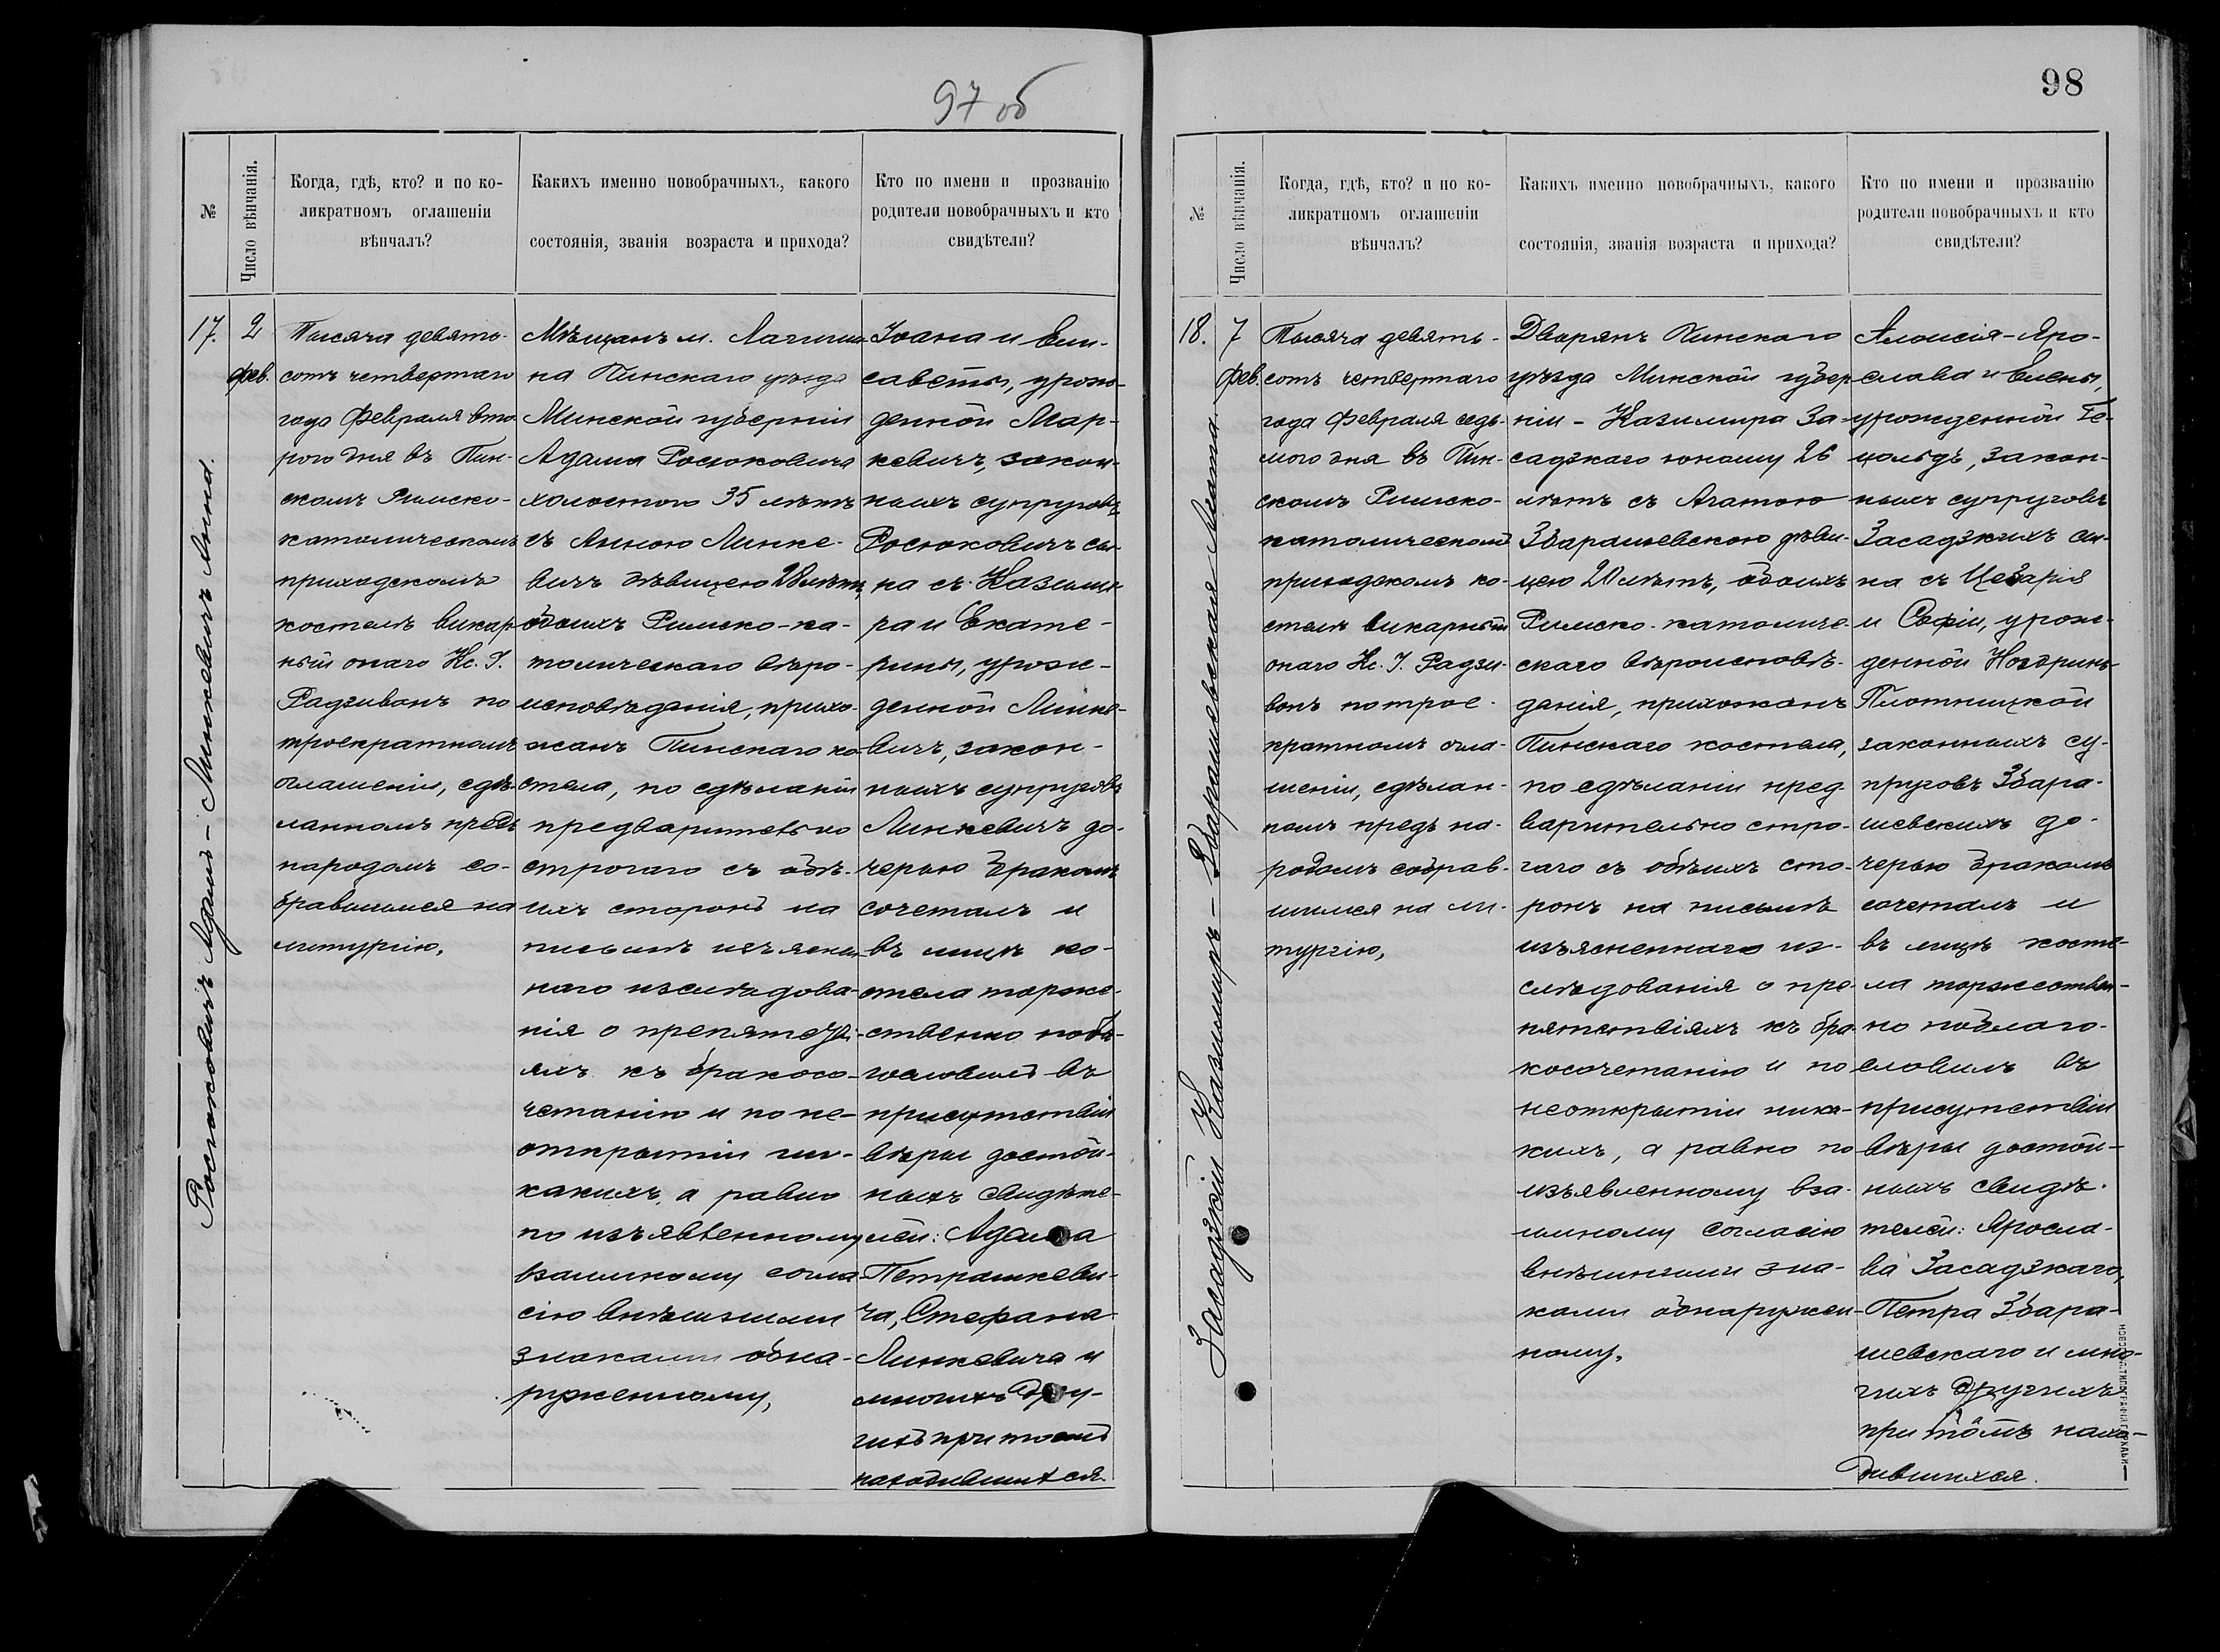 97 об
№
Число вѣнчанія.
Когда, гдѣ, кто? и по ко-
ликратномъ оглашеніи
вѣнчалъ?
Какихъ именно новобрачныхъ, какого
состоянія, званія возраста и прихода?
Кто по имени и прозванію
родители новобрачныхъ и кто
свидѣтели?
17.
2
фев.
Росюковичъ Адамъ - Линкевичъ Анна.
Тысяча девять-
сотъ четвертаго
года Февраля вто-
рого дня въ Пин-
скомъ Римско-
католическомъ
приходскомъ
костелѣ викар-
ный онаго Кс. I.
Радзивонъ по
троекратномъ
оглашеніи, сдѣ-
ланномъ предъ
народомъ со-
бравшимся на
литургію,
Мѣщанъ м. Логиши-
на Пинскаго уѣзда
Минской губерніи
Адама Росюковича
холостого 35 лѣтъ
съ Анною Линке-
вичъ дѣвицею 28 лѣтъ,
обоихъ Римско-ка-
толическаго вѣро-
исповѣданія, прихо-
жанъ Пинскаго ко-
стела, по сдѣланіи
предварительно
строгаго съ обѣ-
ихъ сторонъ на
письмѣ изъяснен-
наго изслѣдова-
нія о препятстві-
яхъ къ бракосо-
четанію и по не-
открытіи ни-
какихъ, а равно
по изъявленному
взаимному согла-
сію внѣшними
знаками обна-
руженному,
Іоана и Ели-
саветы, урож-
денной Мар-
кевичъ, закон-
ныхъ супруговъ
Росюковичъ сы-
на съ Казими-
ра и Екате-
рины, урож-
денной Линке-
вичъ, закон-
ныхъ супруговъ
Линкевичъ до-
черью бракомъ
сочеталъ и
въ лицѣ ко-
стела торже-
ственно побла-
гословилъ въ
присутствіи
вѣры достой-
ныхъ свидѣте-
лей: Адама
Петрашкеви-
ча, Стефана
Линкевича и
многихъ дру-
гихъ при томъ
находившихся.
98
№
Число вѣнчанія.
Когда, гдѣ, кто? и по ко-
ликратномъ оглашеніи
вѣнчалъ?
Какихъ именно новобрачныхъ, какого
состоянія, званія возраста и прихода?
Кто по имени и прозванію
родители новобрачныхъ и кто
свидѣтели?
18.
7
фев.
Засадзкій Казимиръ - Збарашевская Агата.
Тысяча девять-
сотъ четвертаго
года Февраля седь-
мого дня въ Пин-
скомъ Римско-
католическомъ
приходскомъ ко-
стелѣ викарный
онаго Кс. I. Радзи-
вонъ по трое-
кратномъ огла-
шеніи, сдѣлан-
номъ предъ на-
родомъ собрав-
шимся на ли-
тургію,
Дворянъ Пинскаго
уѣзда Минской губер-
ніи - Казимира За-
садзкаго юношу 26
лѣтъ съ Агатою
Збарашевскою дѣви-
цею 20 лѣтъ, обоихъ
Римско-католиче-
скаго вѣроисповѣ-
данія, прихожанъ
Пинскаго костела,
по сдѣланіи пред-
варительно стро-
гаго съ обѣихъ сто-
ронъ на письмѣ
изъясненнаго из-
слѣдованія о пре-
пятствіяхъ къ бра-
косочетанію и по
неоткрытіи ника-
кихъ, а равно по
изъявленному вза-
имному согласію
внѣшними зна-
ками обнаружен-
ному,
Алоисія-Яро-
слава и Елены,
урожденной Ге-
цольдъ, закон-
ныхъ супруговъ
Засадзкихъ сы-
на съ Цезарія
и Софіи, урож-
денной Ноздринъ-
Плотницкой
законныхъ су-
пруговъ Збара-
шевскихъ до-
черью бракомъ
сочеталъ и
въ лицѣ косте-
ла торжествен-
но поблаго-
словилъ въ
присутствіи
вѣры достой-
ныхъ свидѣ-
телей: Яросла-
ва Засадзкаго,
Петра Збара-
шевскаго и мно-
гихъ другихъ
при томъ нахо-
дившихся.